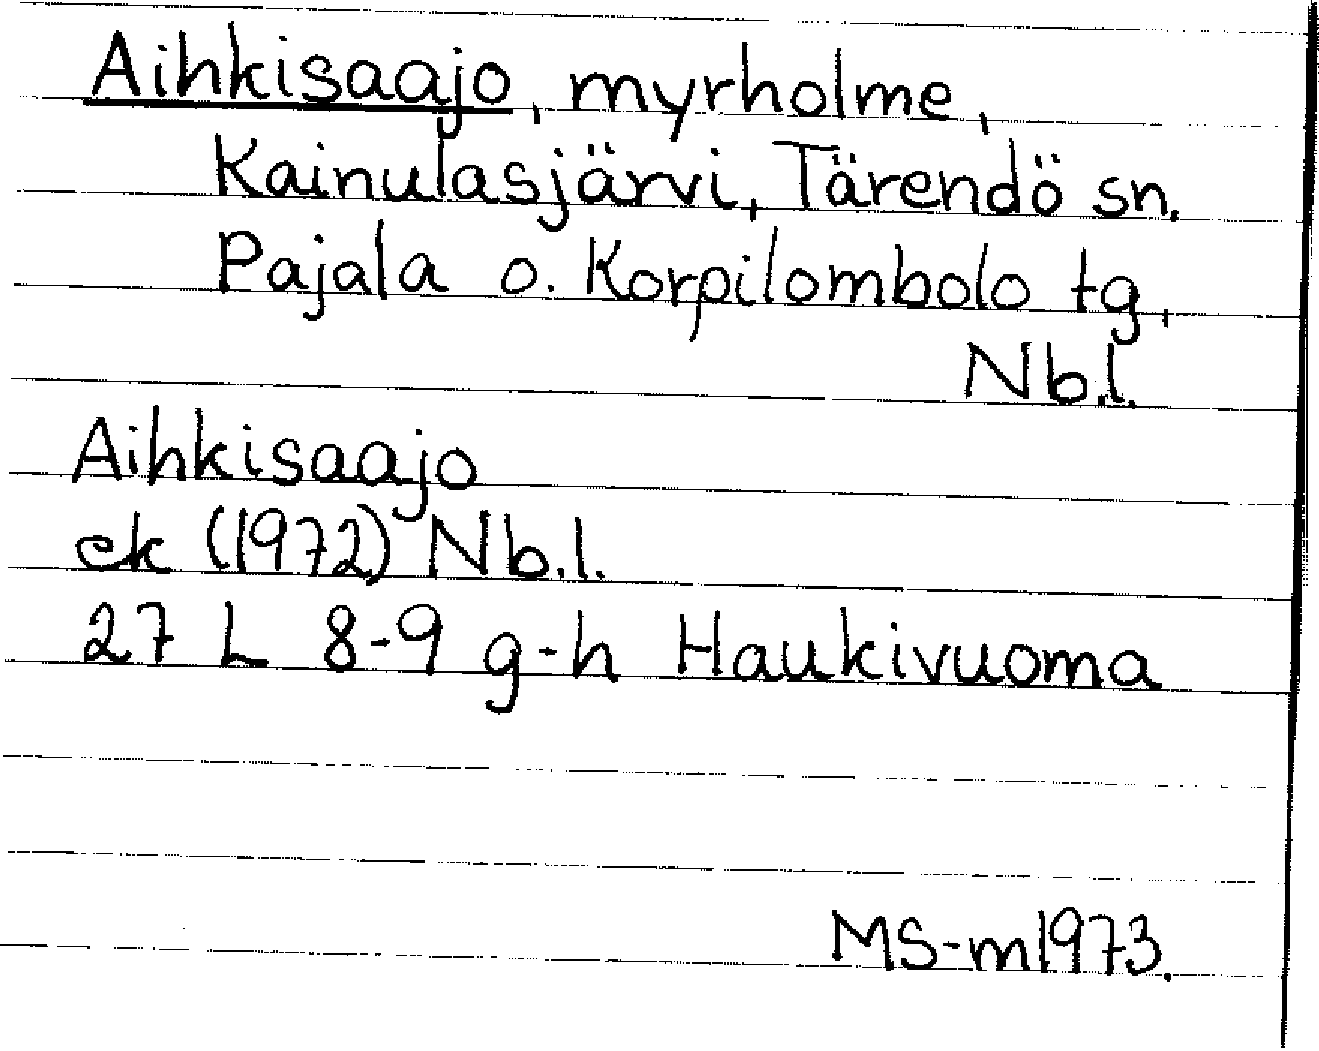 Aihkisaajo, myrholme,
Kainulasjärvi, Tärendö sn.
Pajala o. Korpilombolo tg,
Nb.l.
Aihkisaajo
ek (1972) Nb.l.
27 L 8-9 g-h Haukivuoma
MS-m1973.